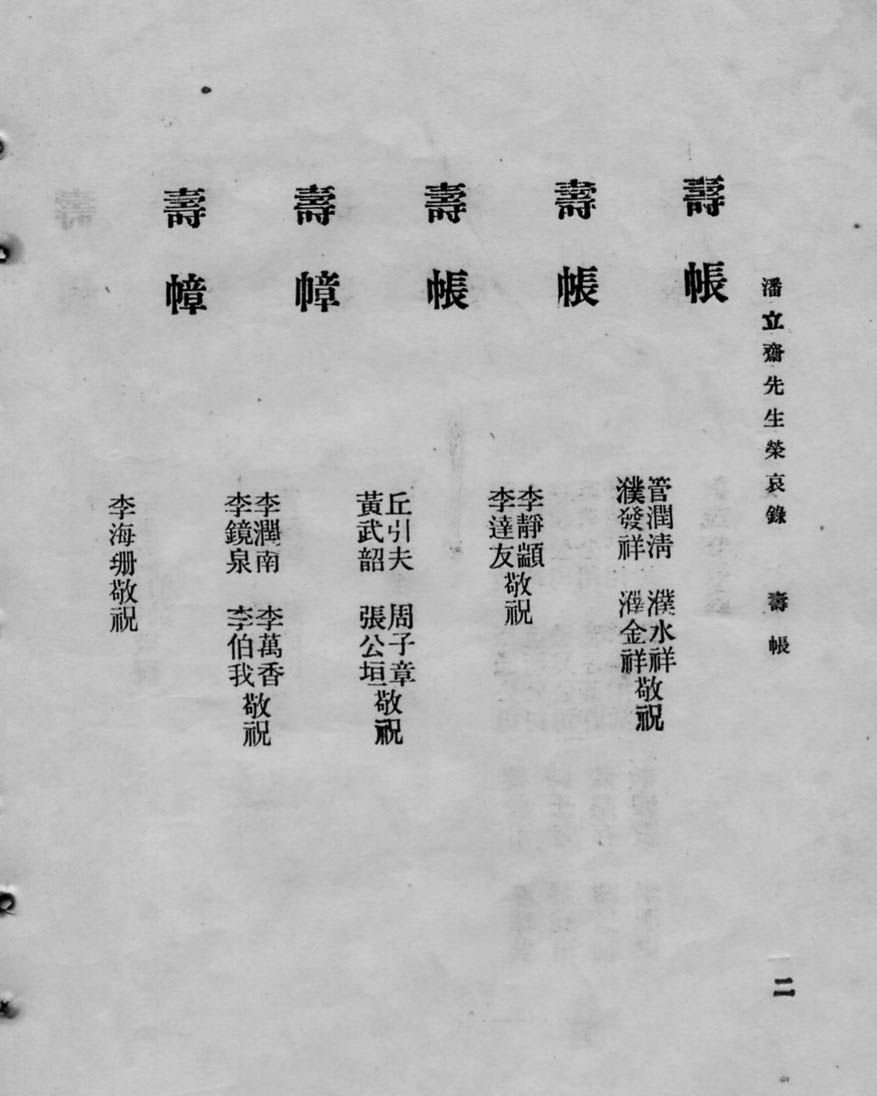 潘立齋先生榮哀錄　壽帳　二
壽帳
管潤淸　濮水祥
濮發祥　濮金祥敬祝
壽帳
李靜顓
李達友敬祝
壽帳
丘引夫　周子章
黃武韶　張公垣敬祝
壽幛
李潤南　李萬香
李鏡泉　李伯我敬祝
壽幛
李海珊敬祝